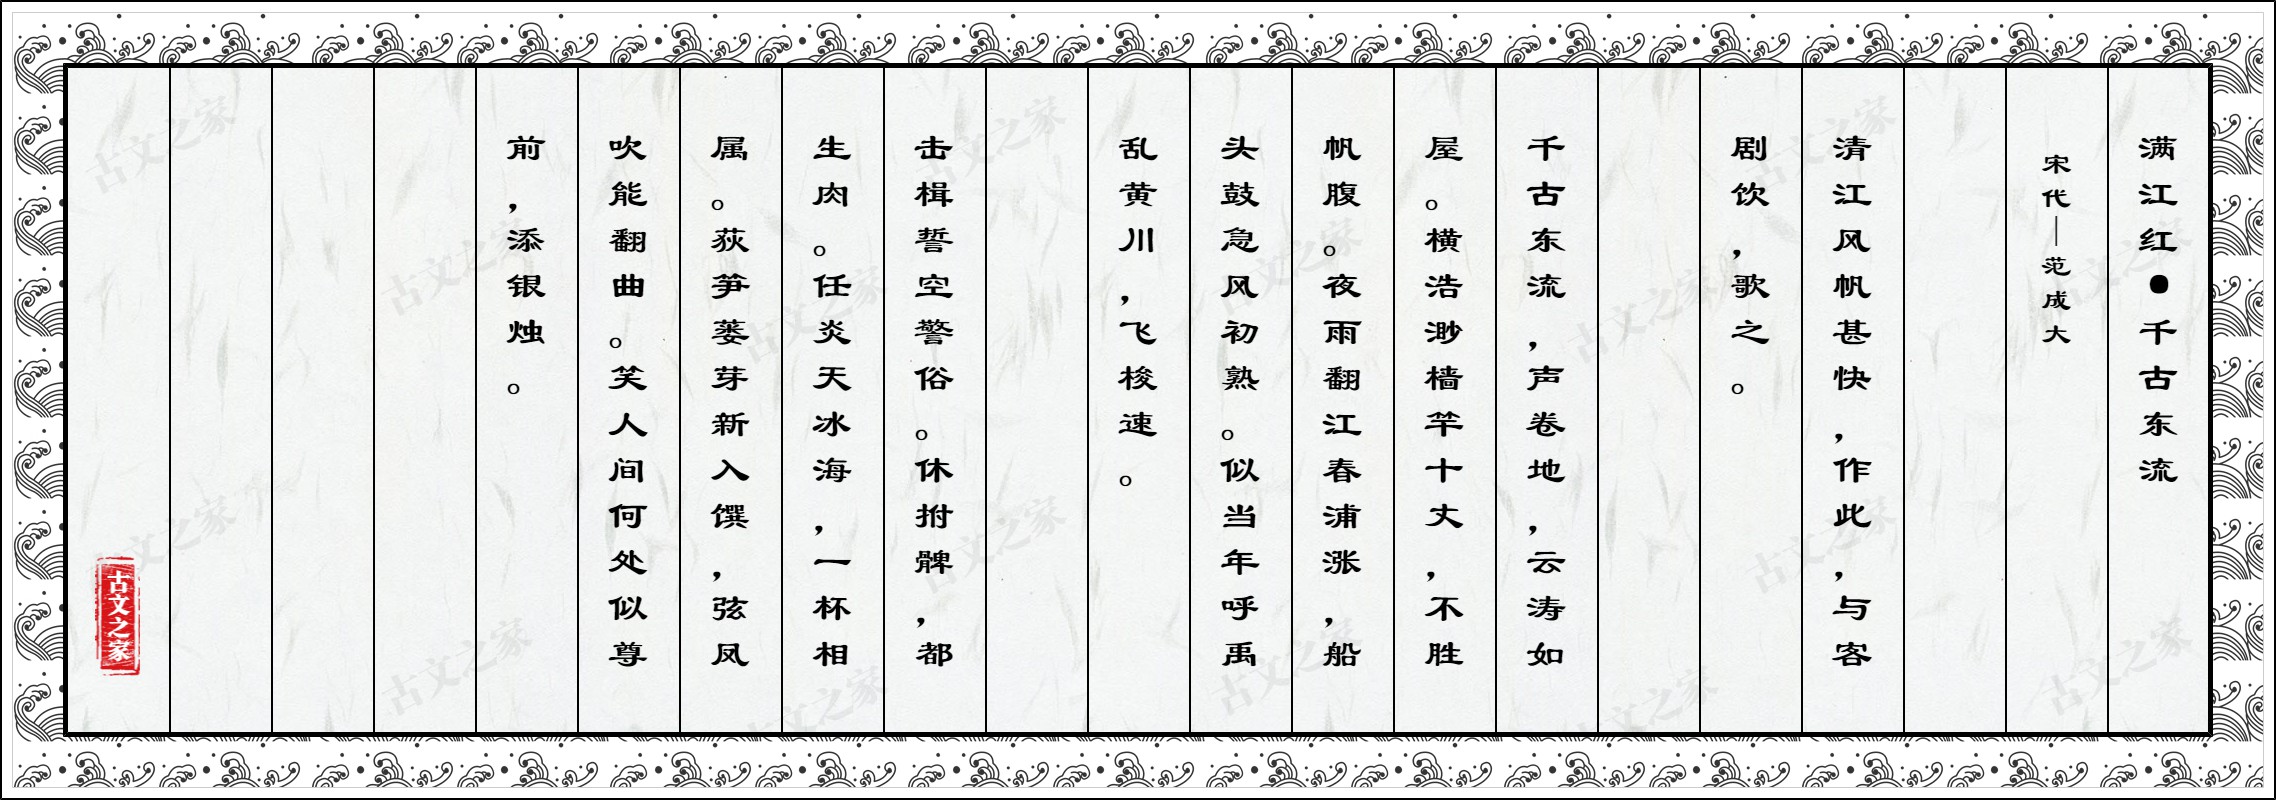 满江红●千古东流
宋代—范成大
清江风帆甚快，作此，与客
剧饮，歌之。
千古东流，声卷地，云涛如
屋。横浩渺樯竿十丈，不胜
帆腹。夜雨翻江春浦涨，船
头鼓急风初熟。似当年呼禹
乱黄川，飞梭速。
击楫誓空警俗。休拊髀，都
生肉。任炎天冰海，一杯相
属。荻笋蒌芽新入馔，弦凤
吹能翻曲。笑人间何处似尊
前，添银烛。
古文之家